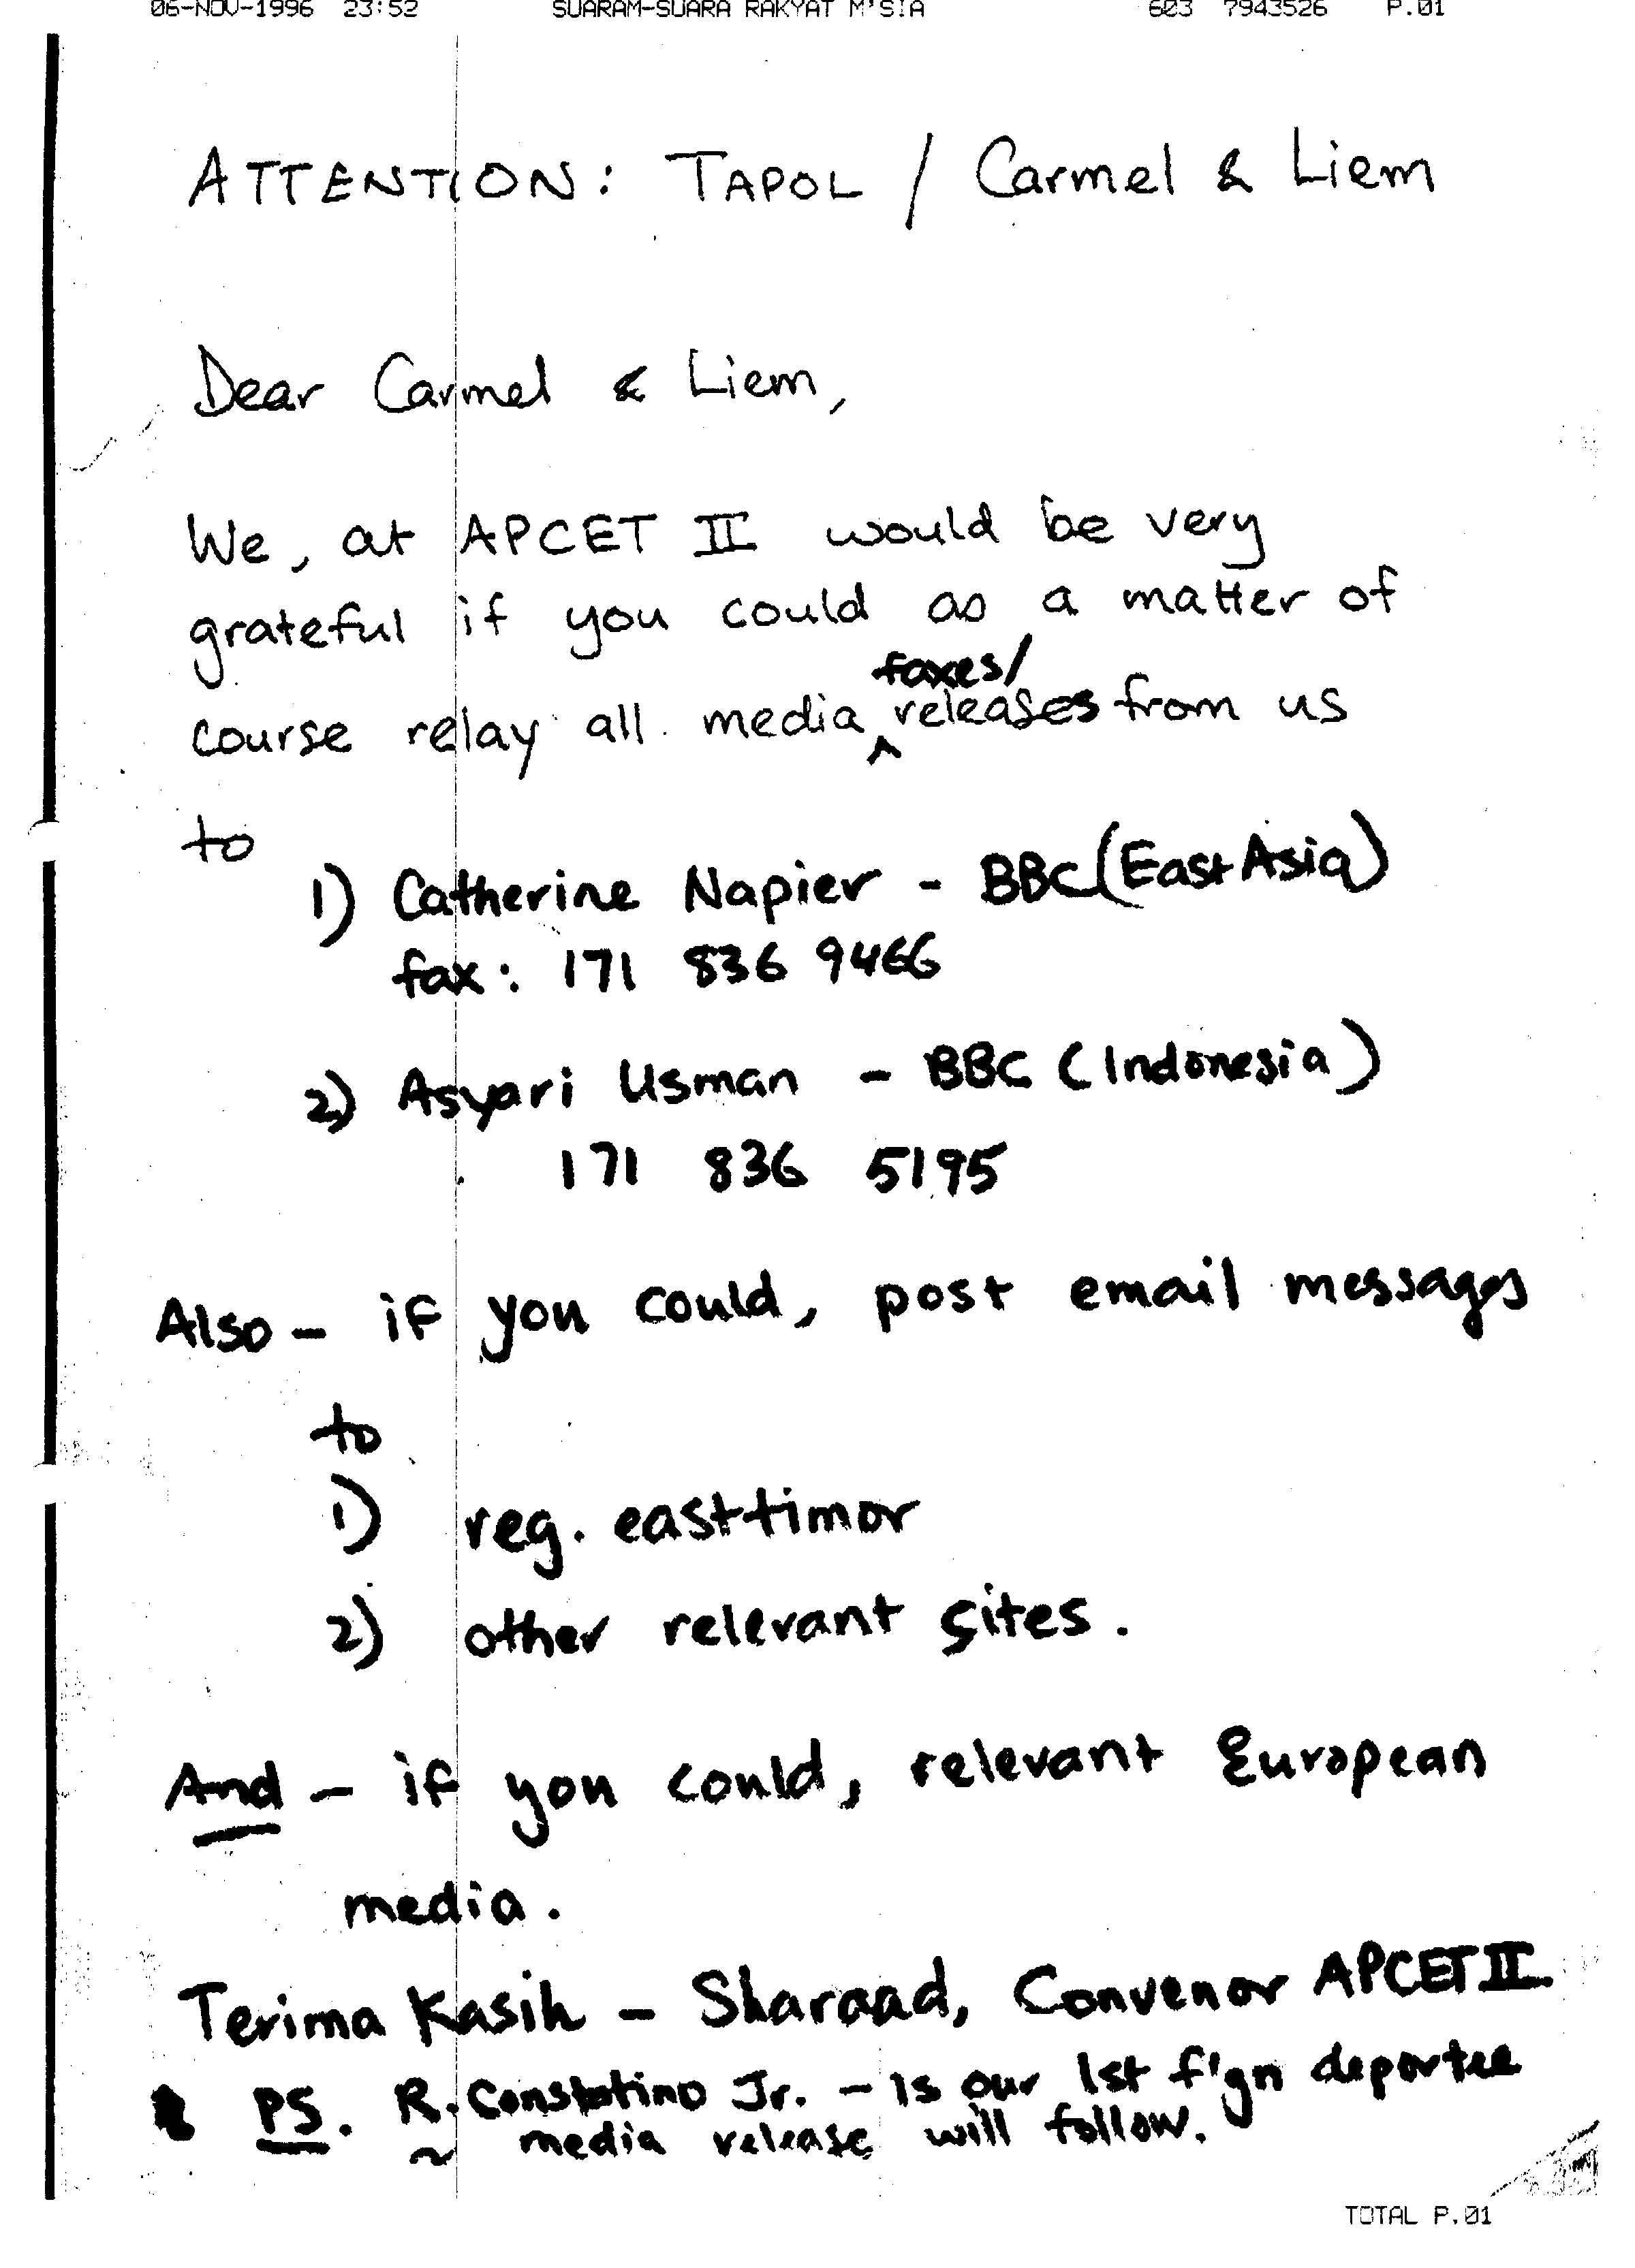 06-NOV-1996 23:52 SUARAM-SUARA RAKYAT M'SIA 603 7943526 P.01
ATTENTION: TAPOL / Carmel & Liem
Dear Carmel & Liem,
We, at APCET II would be very
grateful if you could as a matter of
faxes/
course relay all media releases from us
to
1) Catherine Napier - BBC (East Asia)
fax: 171 836 9466
2) Asyari Usman - BBC (Indonesia)
171 836 5195
Also - if you could, post email messages
to
1) reg. easttimor
2) other relevant sites.
And - if you could, relevant European
media.
Terima Kasih - Sharaad, Convenor APCET II
PS. R. Constatino Jr. - is our 1st f'gn deportee
~ media release will follow.
TOTAL P.01